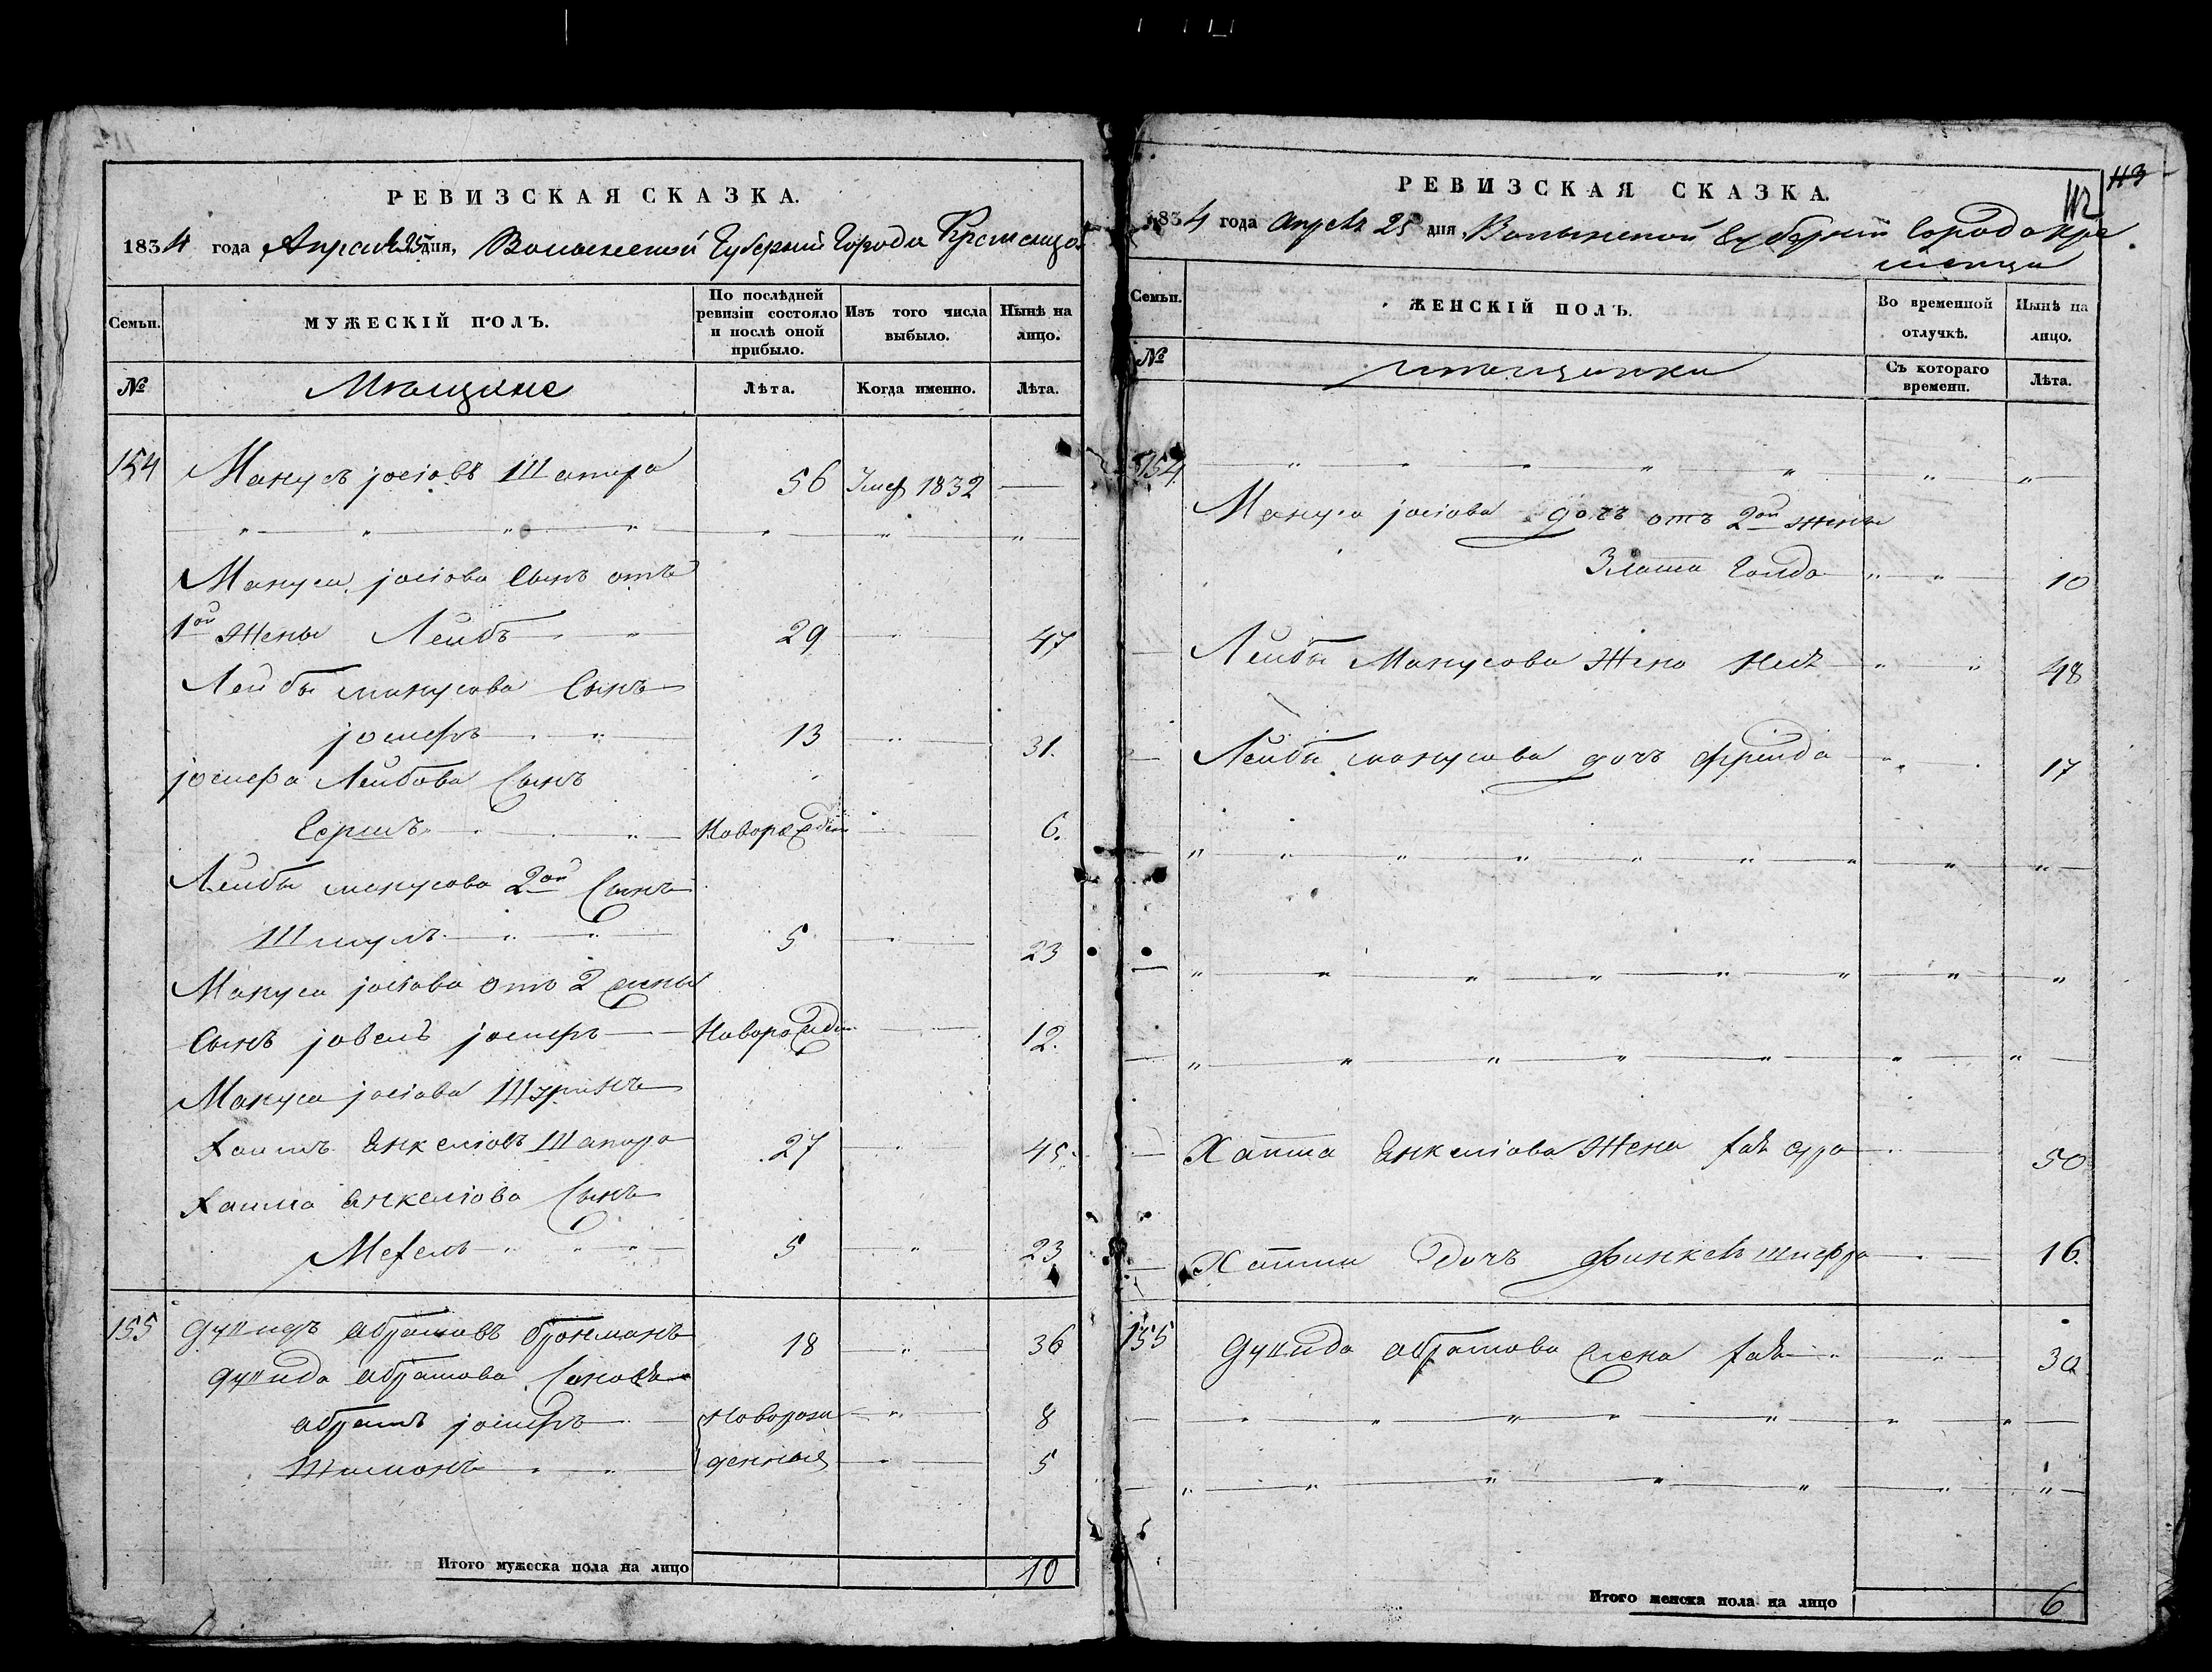 РЕВИЗСКАЯ СКАЗКА.
1834 года Апреля 25 дня, Волынской Губернии Города Кременца
Семьи. МУЖЕСКІЙ ПОЛЪ. По послѣдней ревизіи состояло и послѣ оной прибыло. Изъ того числа выбыло. Нынѣ на лицо.
№ Мѣщане Лѣта. Когда именно. Лѣта.
154 Манусъ Јосіовъ Шапира 56 Умер 1832 —
Мануса Јосіова Сынъ отъ
1ой Жены Лейбъ 29 47
Лейбы Манусова Сынъ
Јосифъ 13 31.
Јосифа Лейбова Сынъ
Герша 6.
Лейбы Манусова 2ой Сынъ
Шмуль 5 23
Мануса Јосіова отъ 2 жены
Сынъ Јовель Јосифъ 12.
Мануса Јосіова Шуринъ
Хаимъ Янкеліовъ Шапира 27 45.
Хаима Янкеліова Сынъ
Мехель 5 23
155 Дувидъ Абрамовъ Бронманъ 18 36
Дувида Абрамова Сыновья
Абрамъ Јосифъ Новорож 8
денные 5
Итого мужеска пола на лицо 10
113
112
РЕВИЗСКАЯ СКАЗКА.
1834 года Апреля 25 дня Волынской Губерніи Города Кре
менца
Семьи. ЖЕНСКІЙ ПОЛЪ. Во временной отлучкѣ. Нынѣ на лицо.
№ Мѣщанки Съ котораго времени. Лѣта.
154
Мануса Јосіова дочь отъ 2ой жены
Злата Голда 10
Лейбы Манусова Жена 48
Лейбы Манусова дочь Фрейда 17
Хаима Янкеліова Жена Хая Сура 50
Хаима Дочь Финкель Шифра 16.
155 Дувида Абрамова жена Хая 30
Итого женска пола на лицо 6